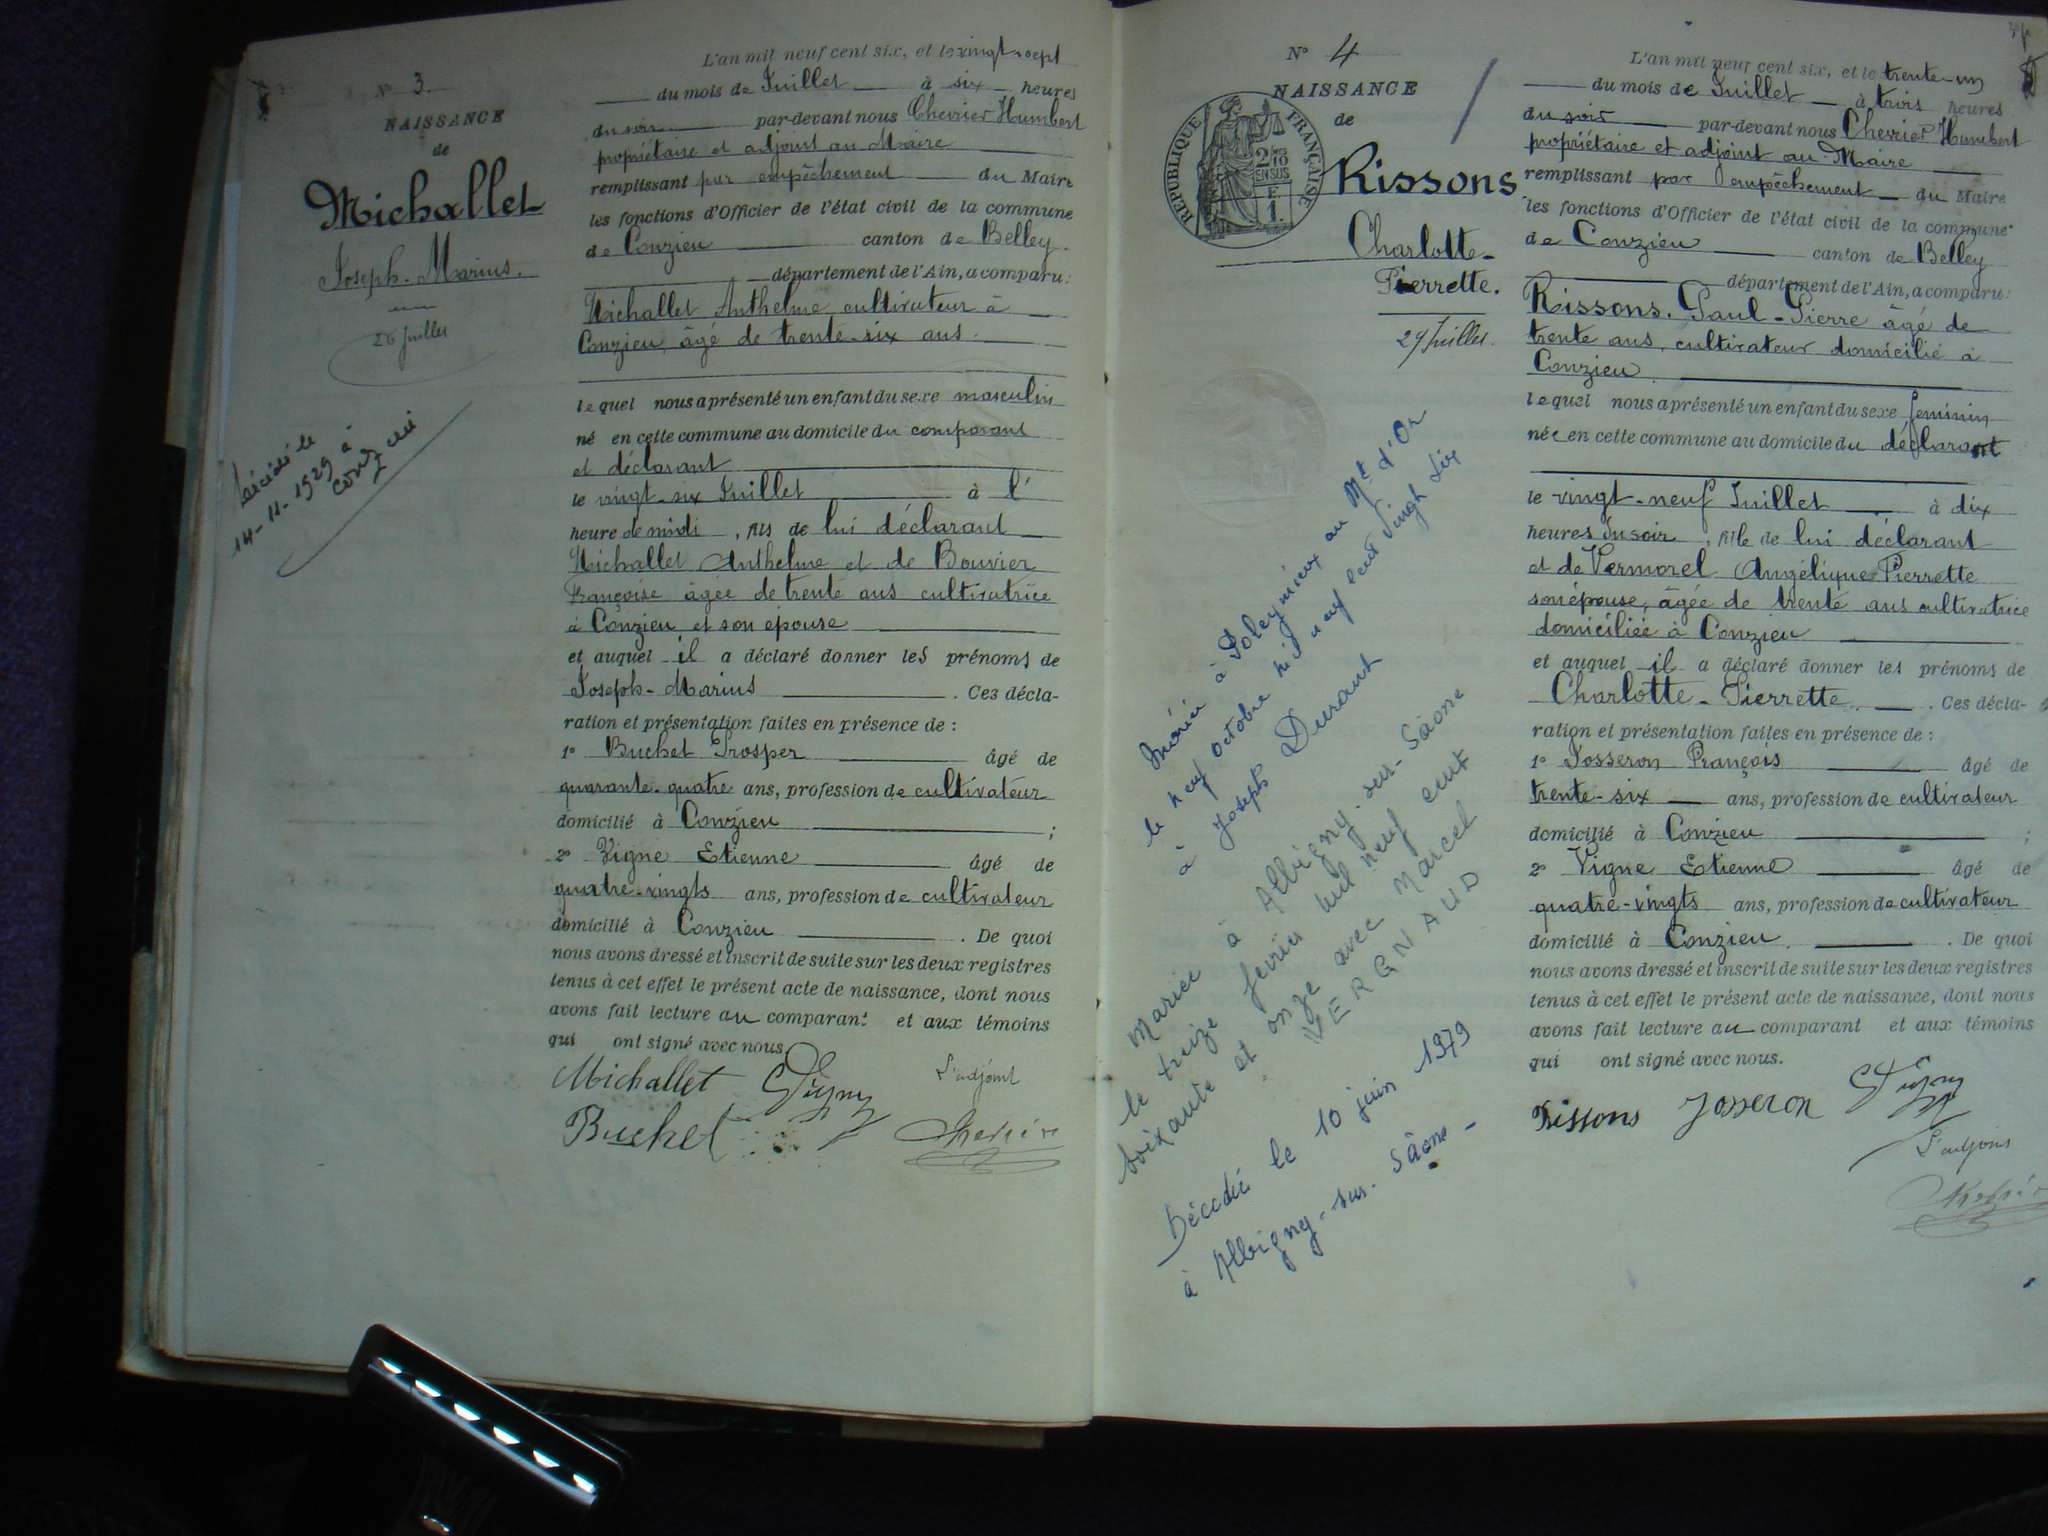 N° 3
NAISSANCE
de
Michallet
Joseph-Marius.
26 Juillet
Décédé le
14-11-1929 à
Conzieu
L'an mil neuf cent six, et le vingt-sept
du mois de Juillet à six heures
du soir par-devant nous Chevrier Humbert
propriétaire et adjoint au Maire
remplissant par empêchement du Maire
les fonctions d'Officier de l'état civil de la commune
de Conzieu canton de Belley.
département de l'Ain, a comparu:
Michallet Anthelme cultivateur à
Conzieu, âgé de trente-six ans.
lequel nous a présenté un enfant du sexe masculin
né en cette commune au domicile du comparant
et déclarant
le vingt-six Juillet à l'
heure de midi, fils de lui déclarant
Michallet Anthelme et de Bouvier
Françoise âgée de trente ans cultivatrice
à Conzieu et son épouse
et auquel il a déclaré donner les prénoms de
Joseph-Marius. Ces décla-
ration et présentation faites en présence de :
1° Buchet Prosper âgé de
quarante-quatre ans, profession de cultivateur
domicilié à Conzieu ;
2° Vigne Etienne âgé de
quatre-vingts ans, profession de cultivateur
domicilié à Conzieu. De quoi
nous avons dressé et inscrit de suite sur les deux registres
tenus à cet effet le présent acte de naissance, dont nous
avons fait lecture au comparant et aux témoins
qui ont signé avec nous.
Michallet Vigne L'adjoint
Buchet Chevrier
N° 4
NAISSANCE
de
RÉPUBLIQUE FRANÇAISE
2/10 EN SUS
F.
1.
Rissons
Charlotte-
Pierrette.
29 Juillet.
Mariée à Poleymieux au Mt d'Or
le neuf octobre mil neuf cent vingt six
à Joseph Durant
Mariée à Albigny-sur-Saône
le treize février mil neuf cent
soixante et onze avec Marcel
VERGNAUD
Décédée le 10 juin 1979
à Albigny-sur-Saône-
L'an mil neuf cent six, et le trente-un
du mois de Juillet à trois heures
du soir par-devant nous Chevrier Humbert
propriétaire et adjoint au Maire
remplissant par empêchement du Maire
les fonctions d'Officier de l'état civil de la commune
de Conzieu canton de Belley
département de l'Ain, a comparu:
Rissons. Paul-Pierre âgé de
trente ans, cultivateur domicilié à
Conzieu.
lequel nous a présenté un enfant du sexe féminin
née en cette commune au domicile du déclarant
le vingt-neuf Juillet à dix
heures du soir, fille de lui déclarant
et de Vermorel Angélique Pierrette
son épouse, âgée de trente ans cultivatrice
domiciliée à Conzieu
et auquel il a déclaré donner les prénoms de
Charlotte-Pierrette. Ces décla-
ration et présentation faites en présence de :
1° Josseron François âgé de
trente-six ans, profession de cultivateur
domicilié à Conzieu ;
2° Vigne Etienne âgé de
quatre-vingts ans, profession de cultivateur
domicilié à Conzieu. De quoi
nous avons dressé et inscrit de suite sur les deux registres
tenus à cet effet le présent acte de naissance, dont nous
avons fait lecture au comparant et aux témoins
qui ont signé avec nous.
Rissons Josseron Vigne
L'adjoint
Chevrier